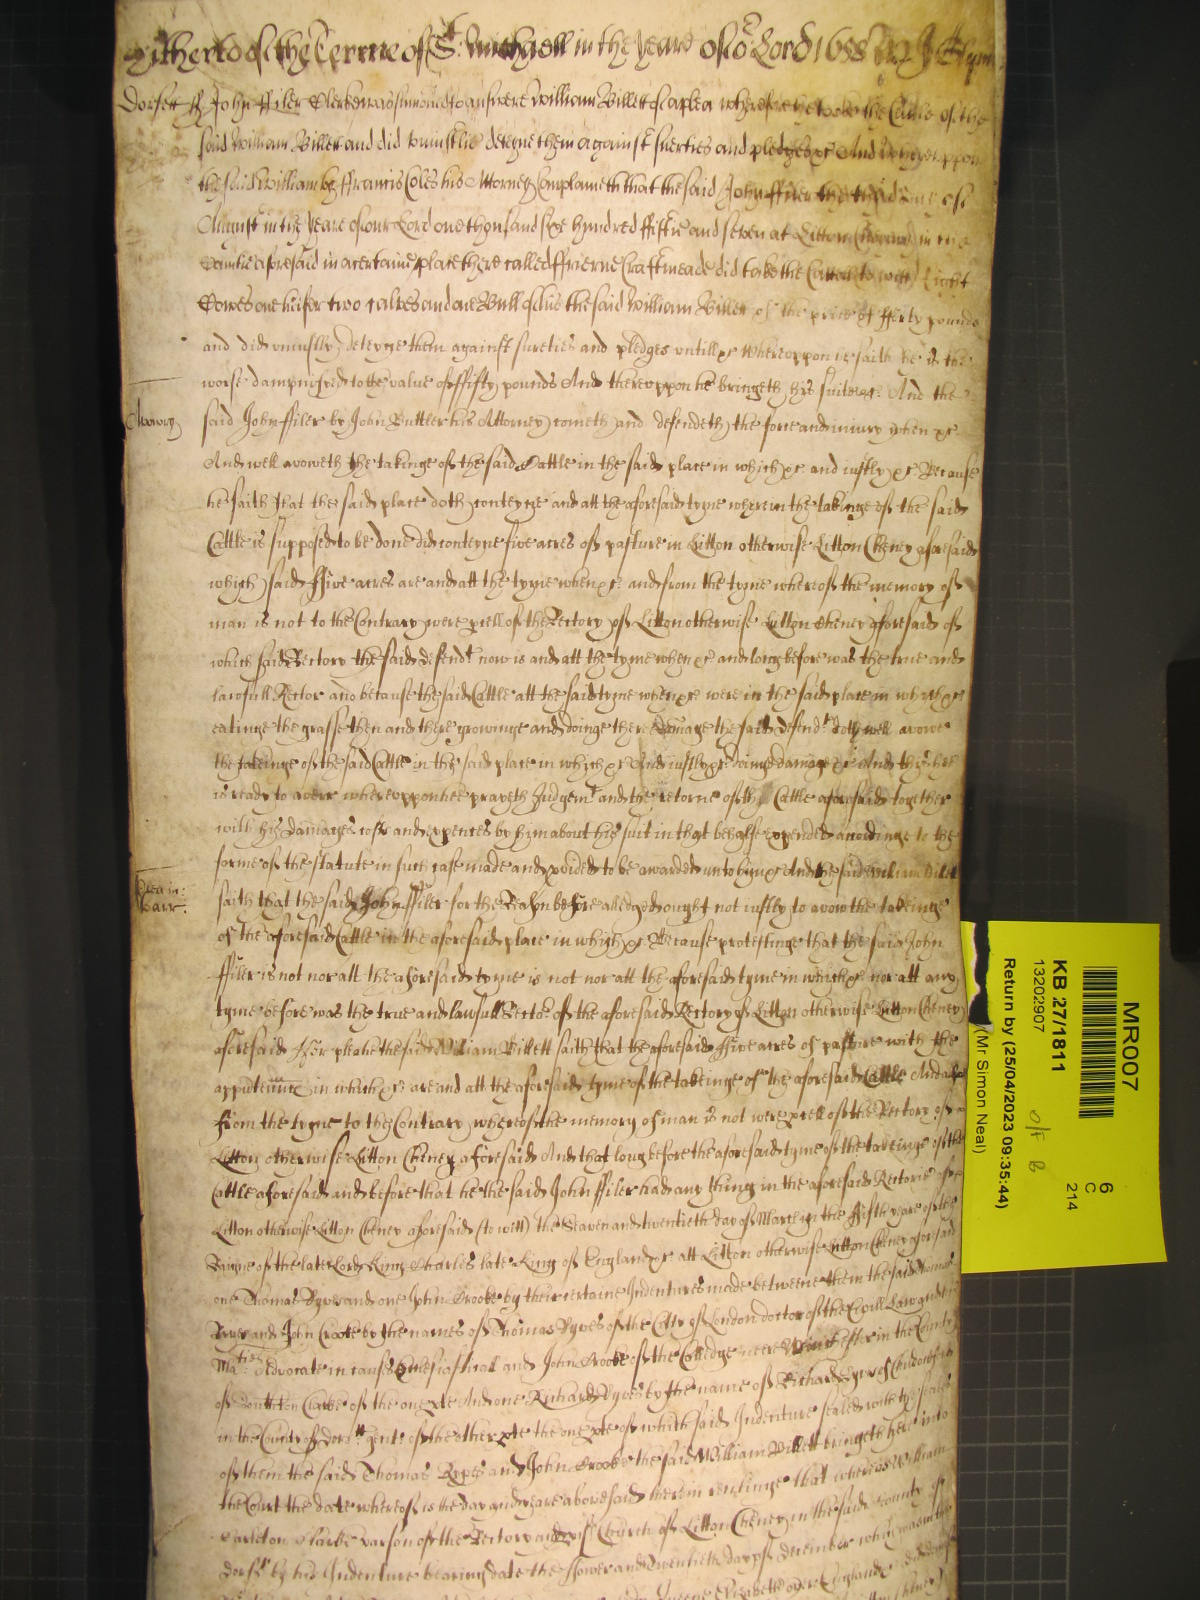 Hitherto of the Terme of St. Michaell in the yeare of or Lord 1658
Dorsett ss John ffiler Clerke was sumoned to answere William Billett of a plea wherefore he tooke the Cattle of the
said William Billett and did uniustlie deteyne them against suerties and pledges &c And whereuppon
the said William by ffrancis Coles his Attorney Complaineth that the said John ffiler the day of
August in the yeare of our Lord one thousand six hundred ffiftie and seven at Litton Cheney in the
Countie aforesaid in a certaine place there called ffrierne Craftmeade did take the Cattell (to witt) Eight
Cowes one heifer two calves and one Bull of his the said William Billett of the price of fforty pounds
and did uniustly deteyne them against sureties and pledges untill &c Whereuppon he saith he is the
worse dampnifyed to the value of ffifty pounds And thereuppon he bringeth his suite &c And the
Avowry
said John ffiler by John Buttler his Attorney cometh and defendeth the force and iniury when &c
And well avoweth the takinge of the said Cattle in the said place in which &c and iustly &c Because
he saith that the said place doth conteyne and att the aforesaid tyme wherein the takinge of the said
Cattle is supposed to be done did conteyne five acres of pasture in Litton otherwise Litton Cheney aforesaid
which said ffive acres are and att the tyme when &c and from the tyme whereof the memory of
man is not to the Contrary were pcell of the Rectory of Litton otherwise Litton Cheney aforesaid of
which said Rectory the said defendt now is and att the tyme when &c and long before was the true and
lawfull Rector and because the said Cattle att the said tyme when &c were in the said place in which &c
eatinge the grasse then and there growinge and doinge there damage the said defendt doth well avowe
the takeinge of the said Cattle in the said place in which &c And iustly &c doing damage &c And this hee
is ready to averr whereuppon hee prayeth Judgemt and the retorne of the Cattle aforesaid together
with his damages costs and expences by him about his suit in that behalfe expended accordinge to the
forme of the statute in such case made and pvided to be awarded unto him &c And the said William Billett
Plea in
barr
saith that the said John ffiler for the Reason before alledged ought not iustly to avow the takeinge
of the aforesaid Cattle in the aforesaid place in which &c Because protestinge that the said John
ffiler is not nor att the aforesaid tyme is not nor att the aforesaid tyme in which &c nor att any
tyme before was the true and lawfull Rector of the aforesaid Rectory of Litton otherwise Litton Cheney
aforesaid for plea he the said William Billett saith that the aforesaid ffive acres of pasture with the
apputennc in which &c are and att the aforesaid tyme of the takeinge of the aforesaid Cattle And
from the tyme to the Contrary whereof the memory of man is not were pcell of the Rectory of
Litton otherwise Litton Cheney aforesaid And that long before the aforesaid tyme of the takeinge of the
Cattle aforesaid and before that he the said John ffiler had any thing in the aforesaid Rectorie of
Litton otherwise Litton Cheney aforesaid (to witt) the Seaven and twentieth day of March in the ffifth yeare of the
Raigne of the late Lord King Charles late King of England &c att Litton otherwise Litton Cheney aforesaid
one Thomas Ryves and one John Crooke by their certaine Indentures made betweene them the said Thomas
Ryves and John Crooke by the names of Thomas Ryves of the Citty of London doctor of the Civill Law and
Maties Advocate in causes Eclesiasticall and John Crooke of the Colledge neere Winchester in the County
of Southton Clarke of the one pte And one Richard Ryves by the name of Richard Ryves of
in the County of Dorstt gent of the other pte the one pte of which said Indenture sealed with the seales
of them the said Thomas Ryves and John Crooke the said William Billett bringeth here into
the Court the date whereof is the day and yeare abovesaid therein recitinge that whereas William
Carleton Clarke parson of the Rectory and Church of Litton Cheney in the said County of
Dorst by his Indenture bearing date the ffower and Twentieth day of December
Queene Elizabeth over England
MR007
6
C
214
KB 27/1811
13202907
Return by (25/04/2023 09:35:44)
(Mr Simon Neal)